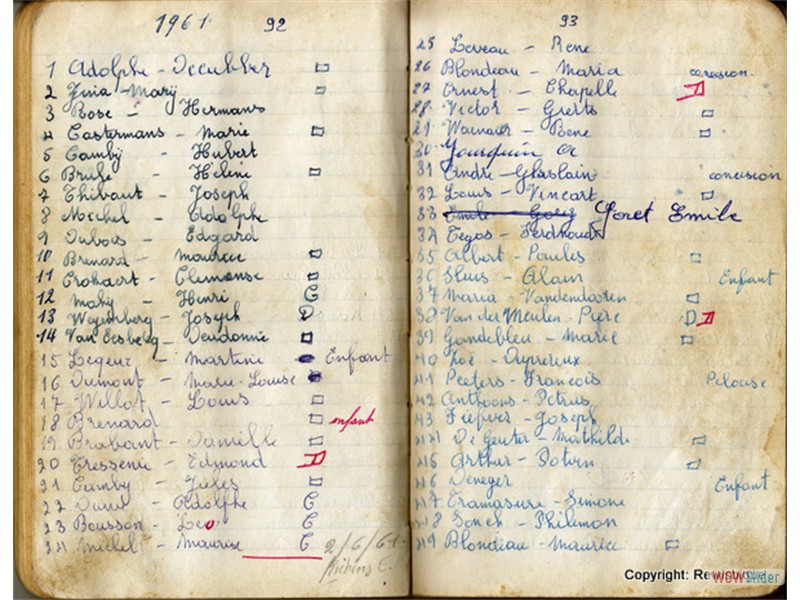 1961 92
1 Adolphe - Decubber
2 - Mary
3 Rose - Hermans
4 Castermans - Marie
5 Camby - Hubert
6 Brule - Helene
7 Thibaut - Joseph
8 Michel - Adolphe
9 Dubois - Edgard
10 Brenard - Maurice
11 Crokaert - Clemense
12 Maky - Henri C
13 Weyemberg - Joseph D
14 Van Esberg - Dieudonnie
15 Legeur - Martine Enfant
16 Dumont - Marie-Louise
17 Willot - Louis
18 Brenard enfant
19 Brabant - Danielle
20 Tressenie - Edmond D
21 Camby - Jules
22 - Adolphe C
23 Bousson - Leo C
24 Michel - Maurice C
2/6/61
93
25 Leveau - Rene
26 Blondeau - Maria concession
27 Ernest - Chapelle D
28 Victor - Geerts
29 - Rene
30 Jourquin
31 Andre - Ghaslain concession
32 Louis - Vincart
33 Emile Foret Emile
34 Tegas - Ferdinand
35 Albert - Paules
36 Sluis - Alain Enfant
37 Maria - Vandendooren
38 Van der Meulen - Piere D D
39 Gondebleu - Marie
40 Zoé - Duprereux
41 Peeters - Francois Pelouse
42 Anthoons - Petrus
43 Fiefver - Joseph
44 De Geuter - Mathilde
45 Arthur - Potvin
46 Deneger Enfant
47 Tramasure - Simone
48 Sonck - Philemon
49 Blondiau - Maurice
Copyright:
WOWSlider